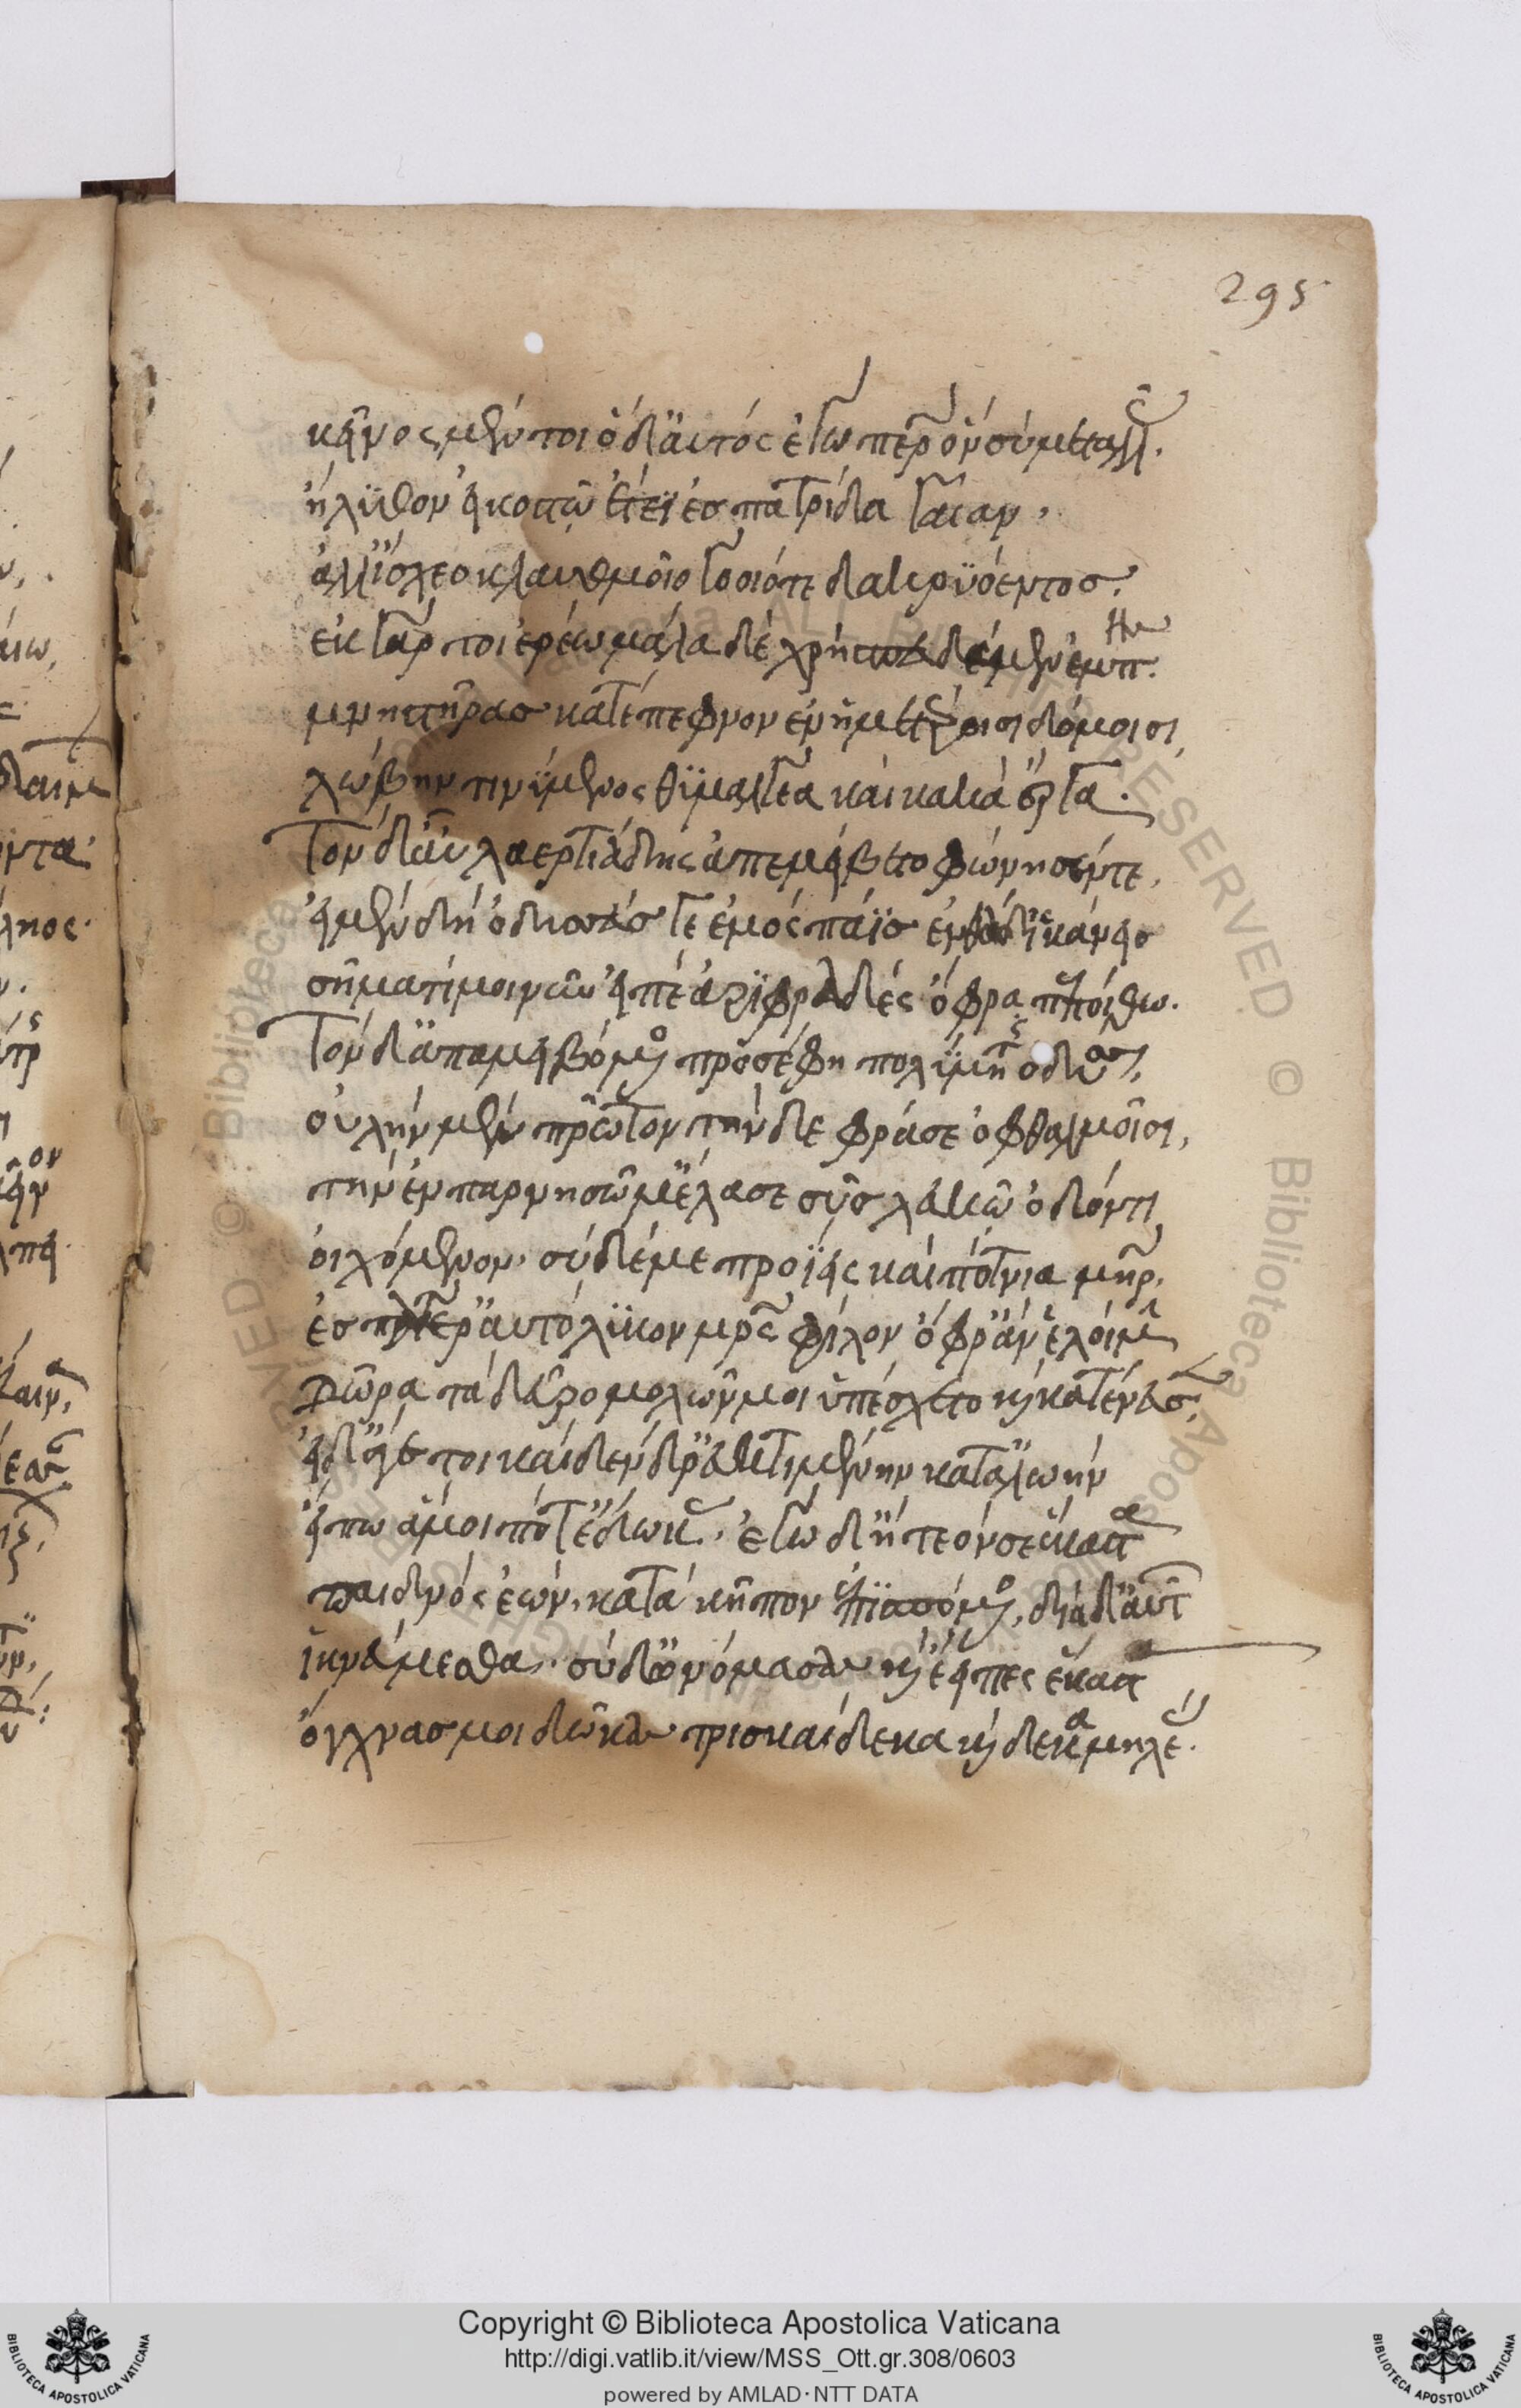 295
κεῖνος μέν τοι ὅδ' αὐτὸς ἐγὼ πέρ ὃν σὺ μεταλλᾷς.
ἤλυθον εἰκοστῷ ἔτεϊ ἐς πατρίδα γαῖαν.
ἀλλ' ἴσχεο κλαυθμοῖο γόοιό τε δακρυόεντος.
ἐκ γάρ τοι ἐρέω μάλα δὲ χρὴ σπευδέμεν ἔμπης.
μνηστῆρας κατέπεφνον ἐν ἡμετέροισι δόμοισι
λώβην τινύμενος θυμαλγέα καὶ κακὰ ἔργα.
Τὸν δ' αὖ λαερτιάδης ἀπεμείβετο φώνησέν τε.
εἰ μὲν δὴ ὀδυσεύς γε ἐμὸς πάϊς ἐνθάδ' ἱκάνεις
σῆμά τί μοι νῦν εἰπὲ ἀριφραδές ὄφρα πεποίθω.
Τὸν δ' ἀπαμειβόμενος προσέφη πολύμητις ὀδυσσεύς.
οὐλὴν μὲν πρῶτον τήνδε φράσε ὀφθαλμοῖσι,
τὴν ἐν παρνησῷ μ' ἔλασε σῦς λευκῷ ὀδόντι
οἰχόμενον. σὺ δέ με προΐεις καὶ πότνια μήτηρ.
ἐς πατέρ' αὐτόλυκον μητρὸς φίλον ὄφρ' ἂν ἑλοίμην
Δῶρα τὰ δεῦρο μολών μοι ὑπέσχετο καὶ κατένευσεν.
εἰ δ' ἄγε τοι καὶ δένδρε' ἐϋκτιμένην κατ' ἀλωὴν
εἴπω ἅ μοί ποτ' ἔδωκας. ἐγὼ δ' ᾔτεόν σε ἕκαστα
παιδνὸς ἐών. κατὰ κῆπον ἐπισπόμενος. διὰ δ' αὐτῶν
ἱκνεύμεσθα. σὺ δ' ὠνόμασας καὶ ἔειπες ἕκαστα
ὄγχνας μοι δῶκας τρισκαίδεκα καὶ δέκα μηλέας.
Copyright © Biblioteca Apostolica Vaticana
http://digi.vatlib.it/view/MSS_Ott.gr.308/0603
powered by AMLAD·NTT DATA